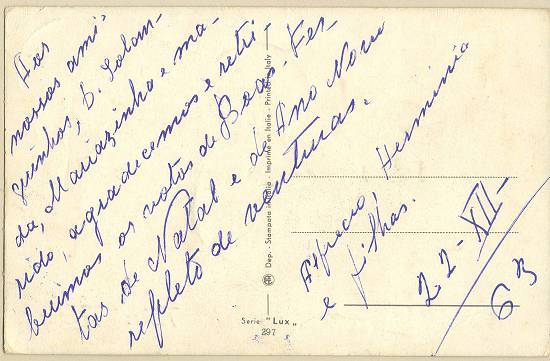 Aos
nossos ami-
guinhos, D. Iolan-
da, Mariazinha e ma-
rido, agradecemos e retri-
buimos os votos de Boas-Fes-
tas de Natal e de Ano Novo
repleto de venturas.
Alfredo, Herminia
e filhas.
22-XII-
63
Dep. - Stampata in Italia - Imprimé en Italie - Printed in Italy
Serie "Lux"
297